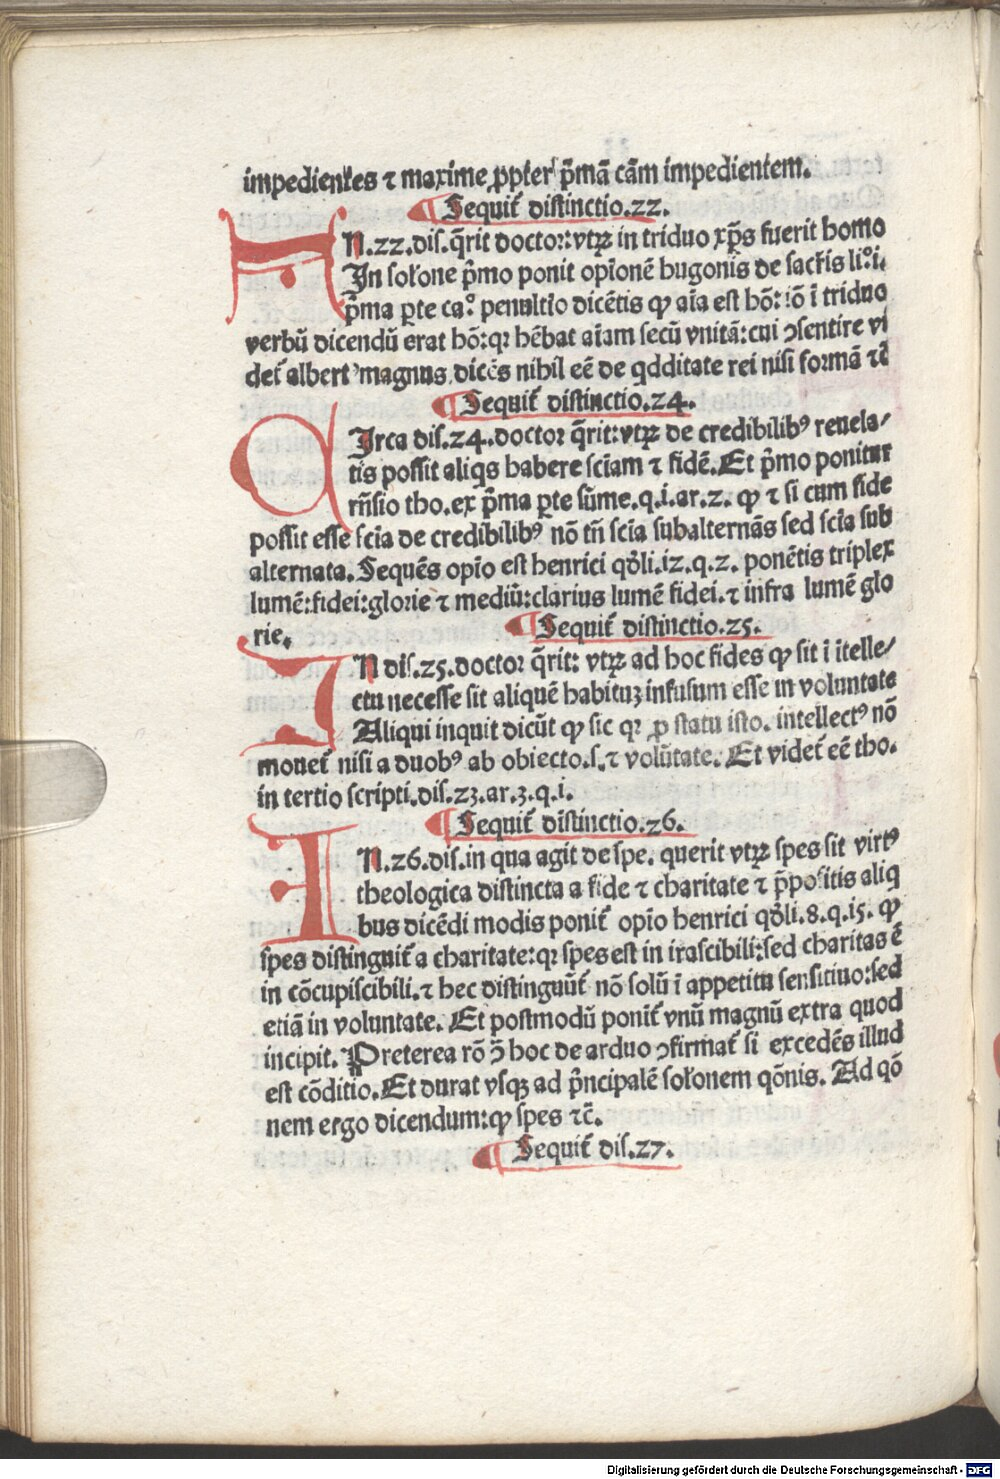 impedientes ⁊ maxime ꝓpter p̄mā cām impedientem.
Sequit̄ distinctio.22.
IN.22.dis.q̄rit doctor: vtrꝫ in triduo xp̄s fuerit homo
In sol'one p̄mo ponit opīonē hugonis de sacr̄is li°.i.
p̄ma ꝑte ca.° penultīo dicētis ꝙ aīa est hō: iō ī triduo
verbū dicendū erat hō: qꝛ hēbat aīam secū vnitā: cui ↄsentire vi
det̄ albert' magnus dicēs nihil eē de qdditate rei nisi formā ⁊c̄
Sequit̄ distinctio.24.
CIrca dis.24.doctor q̄rit: vtrꝫ de credibilibꝰ reuela⸗
tis possit aliqs habere sciam ⁊ fidē. Et p̄mo ponitur
rn̄sio tho. ex p̄ma ꝑte sūme.q.i.ar.2. ꝙ ⁊ si cum fide
possit esse scīa de credibilibꝰ nō tn̄ scīa subalternās sed scīa sub
alternata. Sequēs opīo est henrici qōli.i2.q.2. ponētis triplex
lumē: fidei: glorie ⁊ mediū: clarius lumē fidei. ⁊ infra lumē glo
rie.
Sequit̄ distinctio.25.
IN dis.25.doctor q̄rit: vtrꝫ ad hoc fides ꝙ sit ī itelle⸗
ctu necesse sit aliquē habituꝫ infusum esse in voluntate
Aliqui inquit dicūt ꝙ sic qꝛ ꝓ statu isto. intellectꝰ nō
mouet̄ nisi a duobꝰ ab obiecto.s.⁊ volūtate. Et videt̄ eē tho.
in tertio scripti.dis.23.ar.3.q.i.
Sequit̄ distinctio.26.
IN.26.dis.in qua agit de spe. querit vtrꝫ spes sit virtꝰ
theologica distincta a fide ⁊ charitate ⁊ p̄positis aliq
bus dicēdi modis ponit̄ opīo henrici qōli.8.q.i5. ꝙ
spes distinguit̄ a charitate: qꝛ spes est in irascibili: sed charitas ē
in cōcupiscibili. ⁊ hec distinguūt̄ nō solū ī appetitu sensitiuo: sed
etiā in voluntate. Et postmodū ponit̄ vnū magnū extra quod
incipit. Preterea rō ↄ̄ hoc de arduo ↄfirmat̄ si excedēs illud
est cōditio. Et durat vsqꝫ ad p̄ncipalē sol'onem qōnis. Ad qō
nem ergo dicendum: ꝙ spes ⁊c̄.
Sequit̄ dis.27.
Digitalisierung gefördert durch die Deutsche Forschungsgemeinschaft - DFG